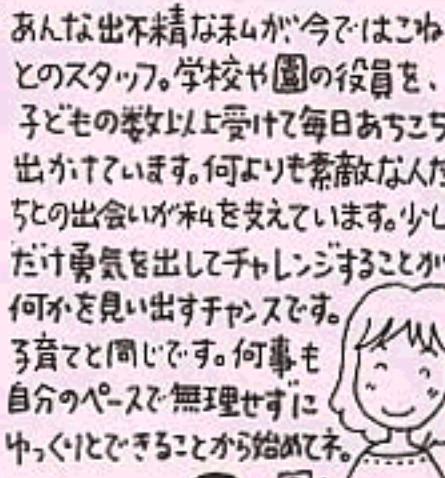 あんな出不精な私が、今ではこね
とのスタッフ。学校や園の役員を、
子どもの数以上受けて毎日あちこち
出かけています。何よりも素敵な人た
ちとの出会いが私を支えています。少し
だけ勇気を出してチャレンジすることが
何かを見い出すチャンスです。
子育てと同じです。何事も
自分のペースで無理せずに
ゆっくりとできることから始めてネ。